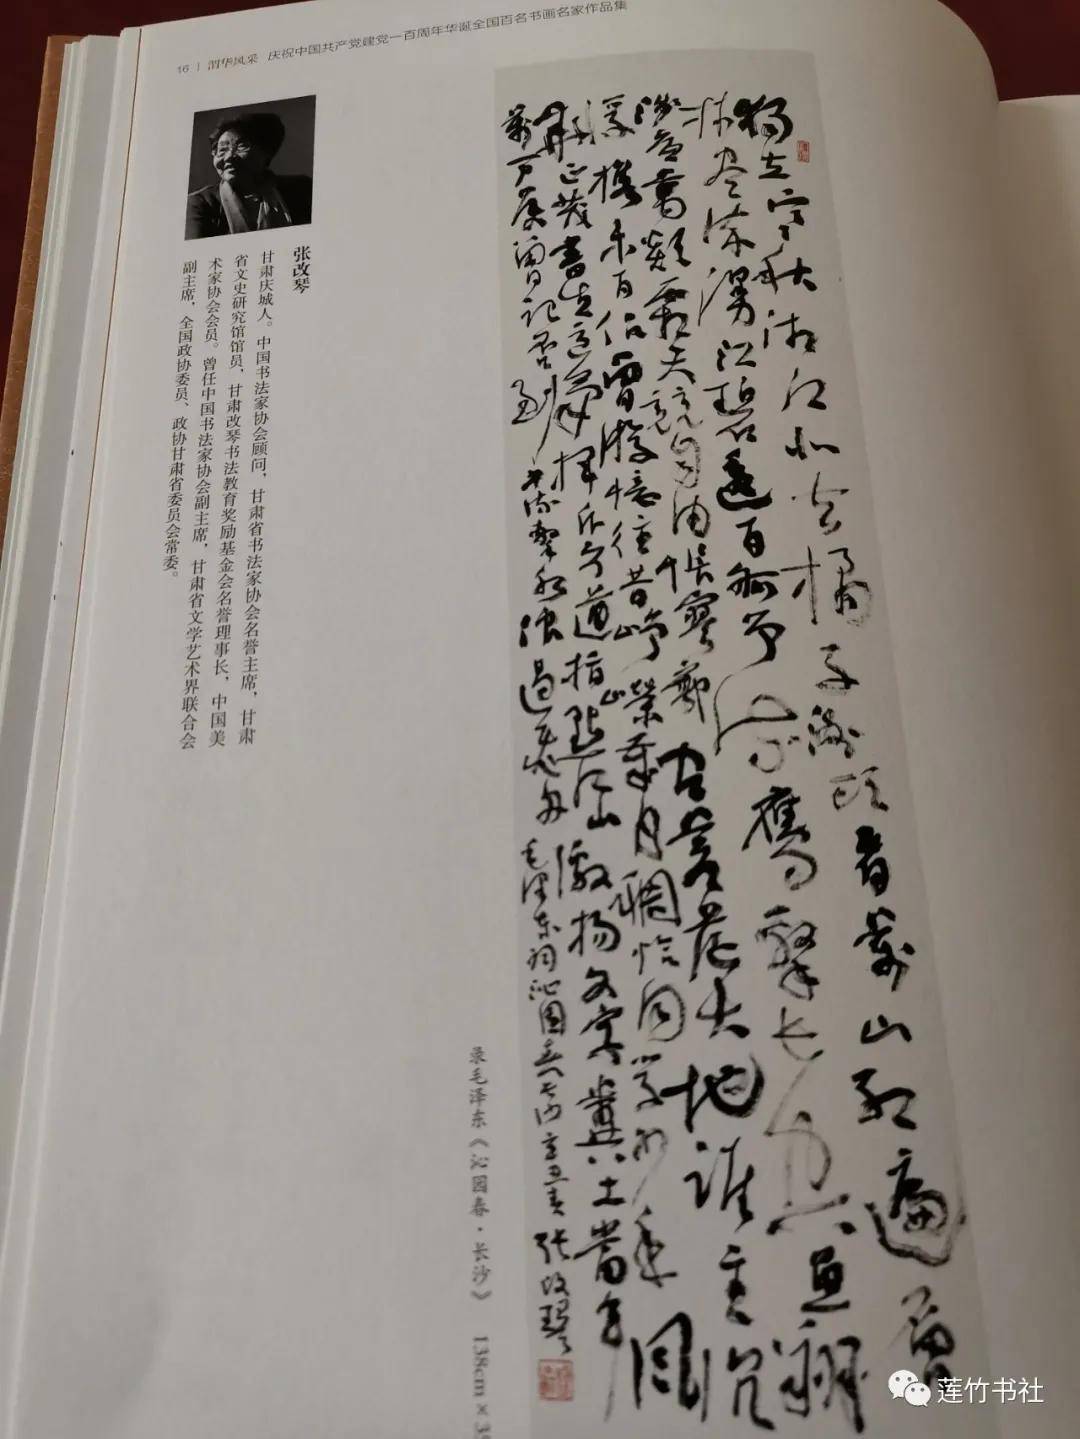 16 | 渭华风采 庆祝中国共产党建党一百周年华诞全国百名书画名家作品集
张改琴
甘肃庆城人。中国书法家协会顾问，甘肃省书法家协会名誉主席，甘肃
省文史研究馆馆员，甘肃改琴书法教育奖励基金会名誉理事长，中国美
术家协会会员。曾任中国书法家协会副主席，甘肃省文学艺术界联合会
副主席，全国政协委员、政协甘肃省委员会常委。
独立寒秋湘江北去橘子洲头看萬山红遍層
林尽染漫江碧透百舸争流鹰擊长空魚翔
浅底萬類霜天競自由悵寥廓问苍茫大地誰主沉
浮携来百侣曾游憶往昔峥嵘岁月稠恰同学少年風
華正茂書生意氣揮斥方遒指點江山激扬文字粪土當年
萬户侯曾记否到中流擊水浪遏飞舟 毛泽东词沁園春长沙 辛丑春 张改琴
录毛泽东《沁园春·长沙》 138cm×3
莲竹书社